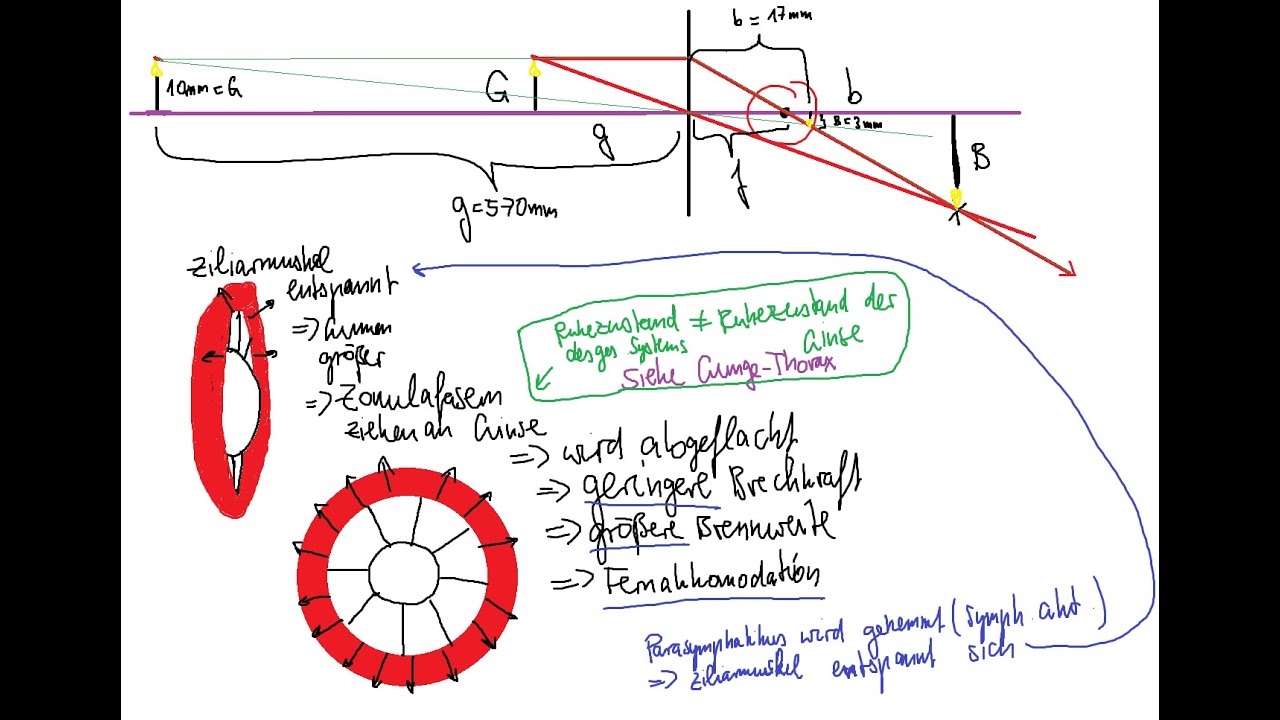 b = 17mm
10mm = G
G
b
B = 3mm
g
f
B
g = 570mm
Ziliarmuskel
entspannt
=> Lumen
größer
=> Zonulafasern
ziehen an Linse
Ruhezustand ≠ Ruhezustand der
des ges Systems Linse
Siehe Lunge-Thorax
=> wird abgeflacht
=> geringere Brechkraft
=> größere Brennweite
=> Fernakkomodation
Parasymphatikus wird gehemmt (symph. akt.)
=> Ziliarmuskel entspannt sich